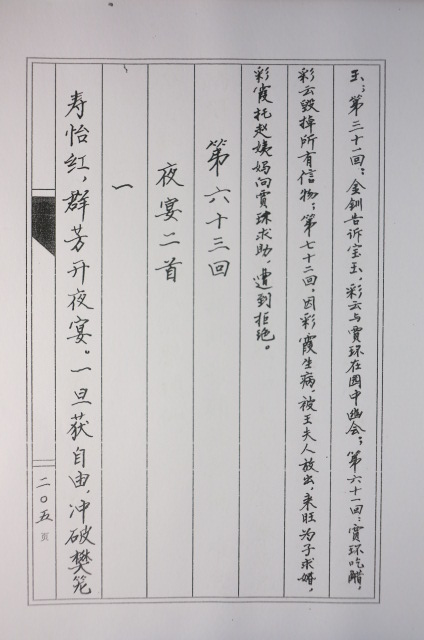 玉；第三十一回：金钏告诉宝玉，彩云与贾环在园中幽会；第六十一回：贾环吃醋，
彩云毁掉所有信物；第七十二回，因彩霞生病，被王夫人放出，来旺为子求婚，
彩霞托赵姨妈向贾环求助，遭到拒绝。
第六十三回
夜宴二首
一
寿怡红，群芳开夜宴。一旦获自由，冲破樊笼
二〇五页